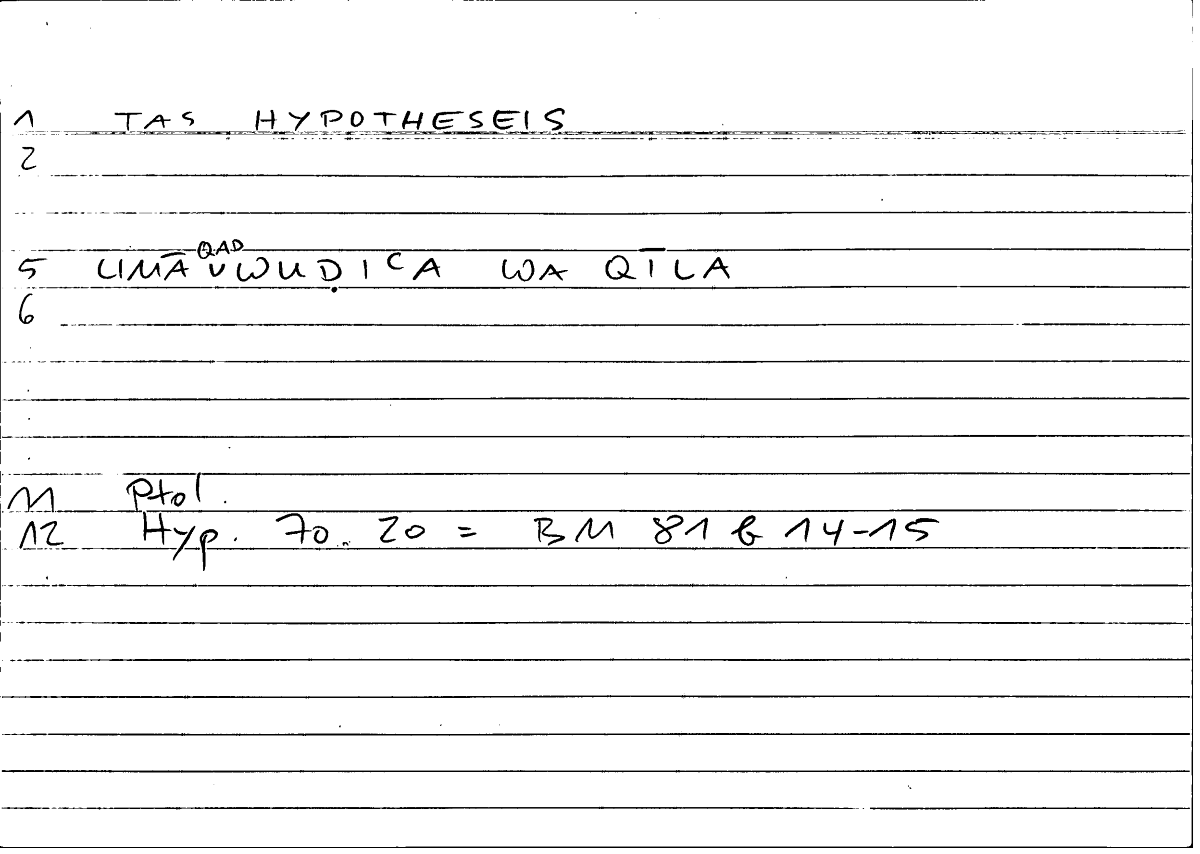 1 TAS HYPOTHESEIS
2
5 LIMĀ QAD WUḌIᶜA WA QĪLA
6
11 Ptol.
12 Hyp. 70. 20 = BM 81 b 14-15